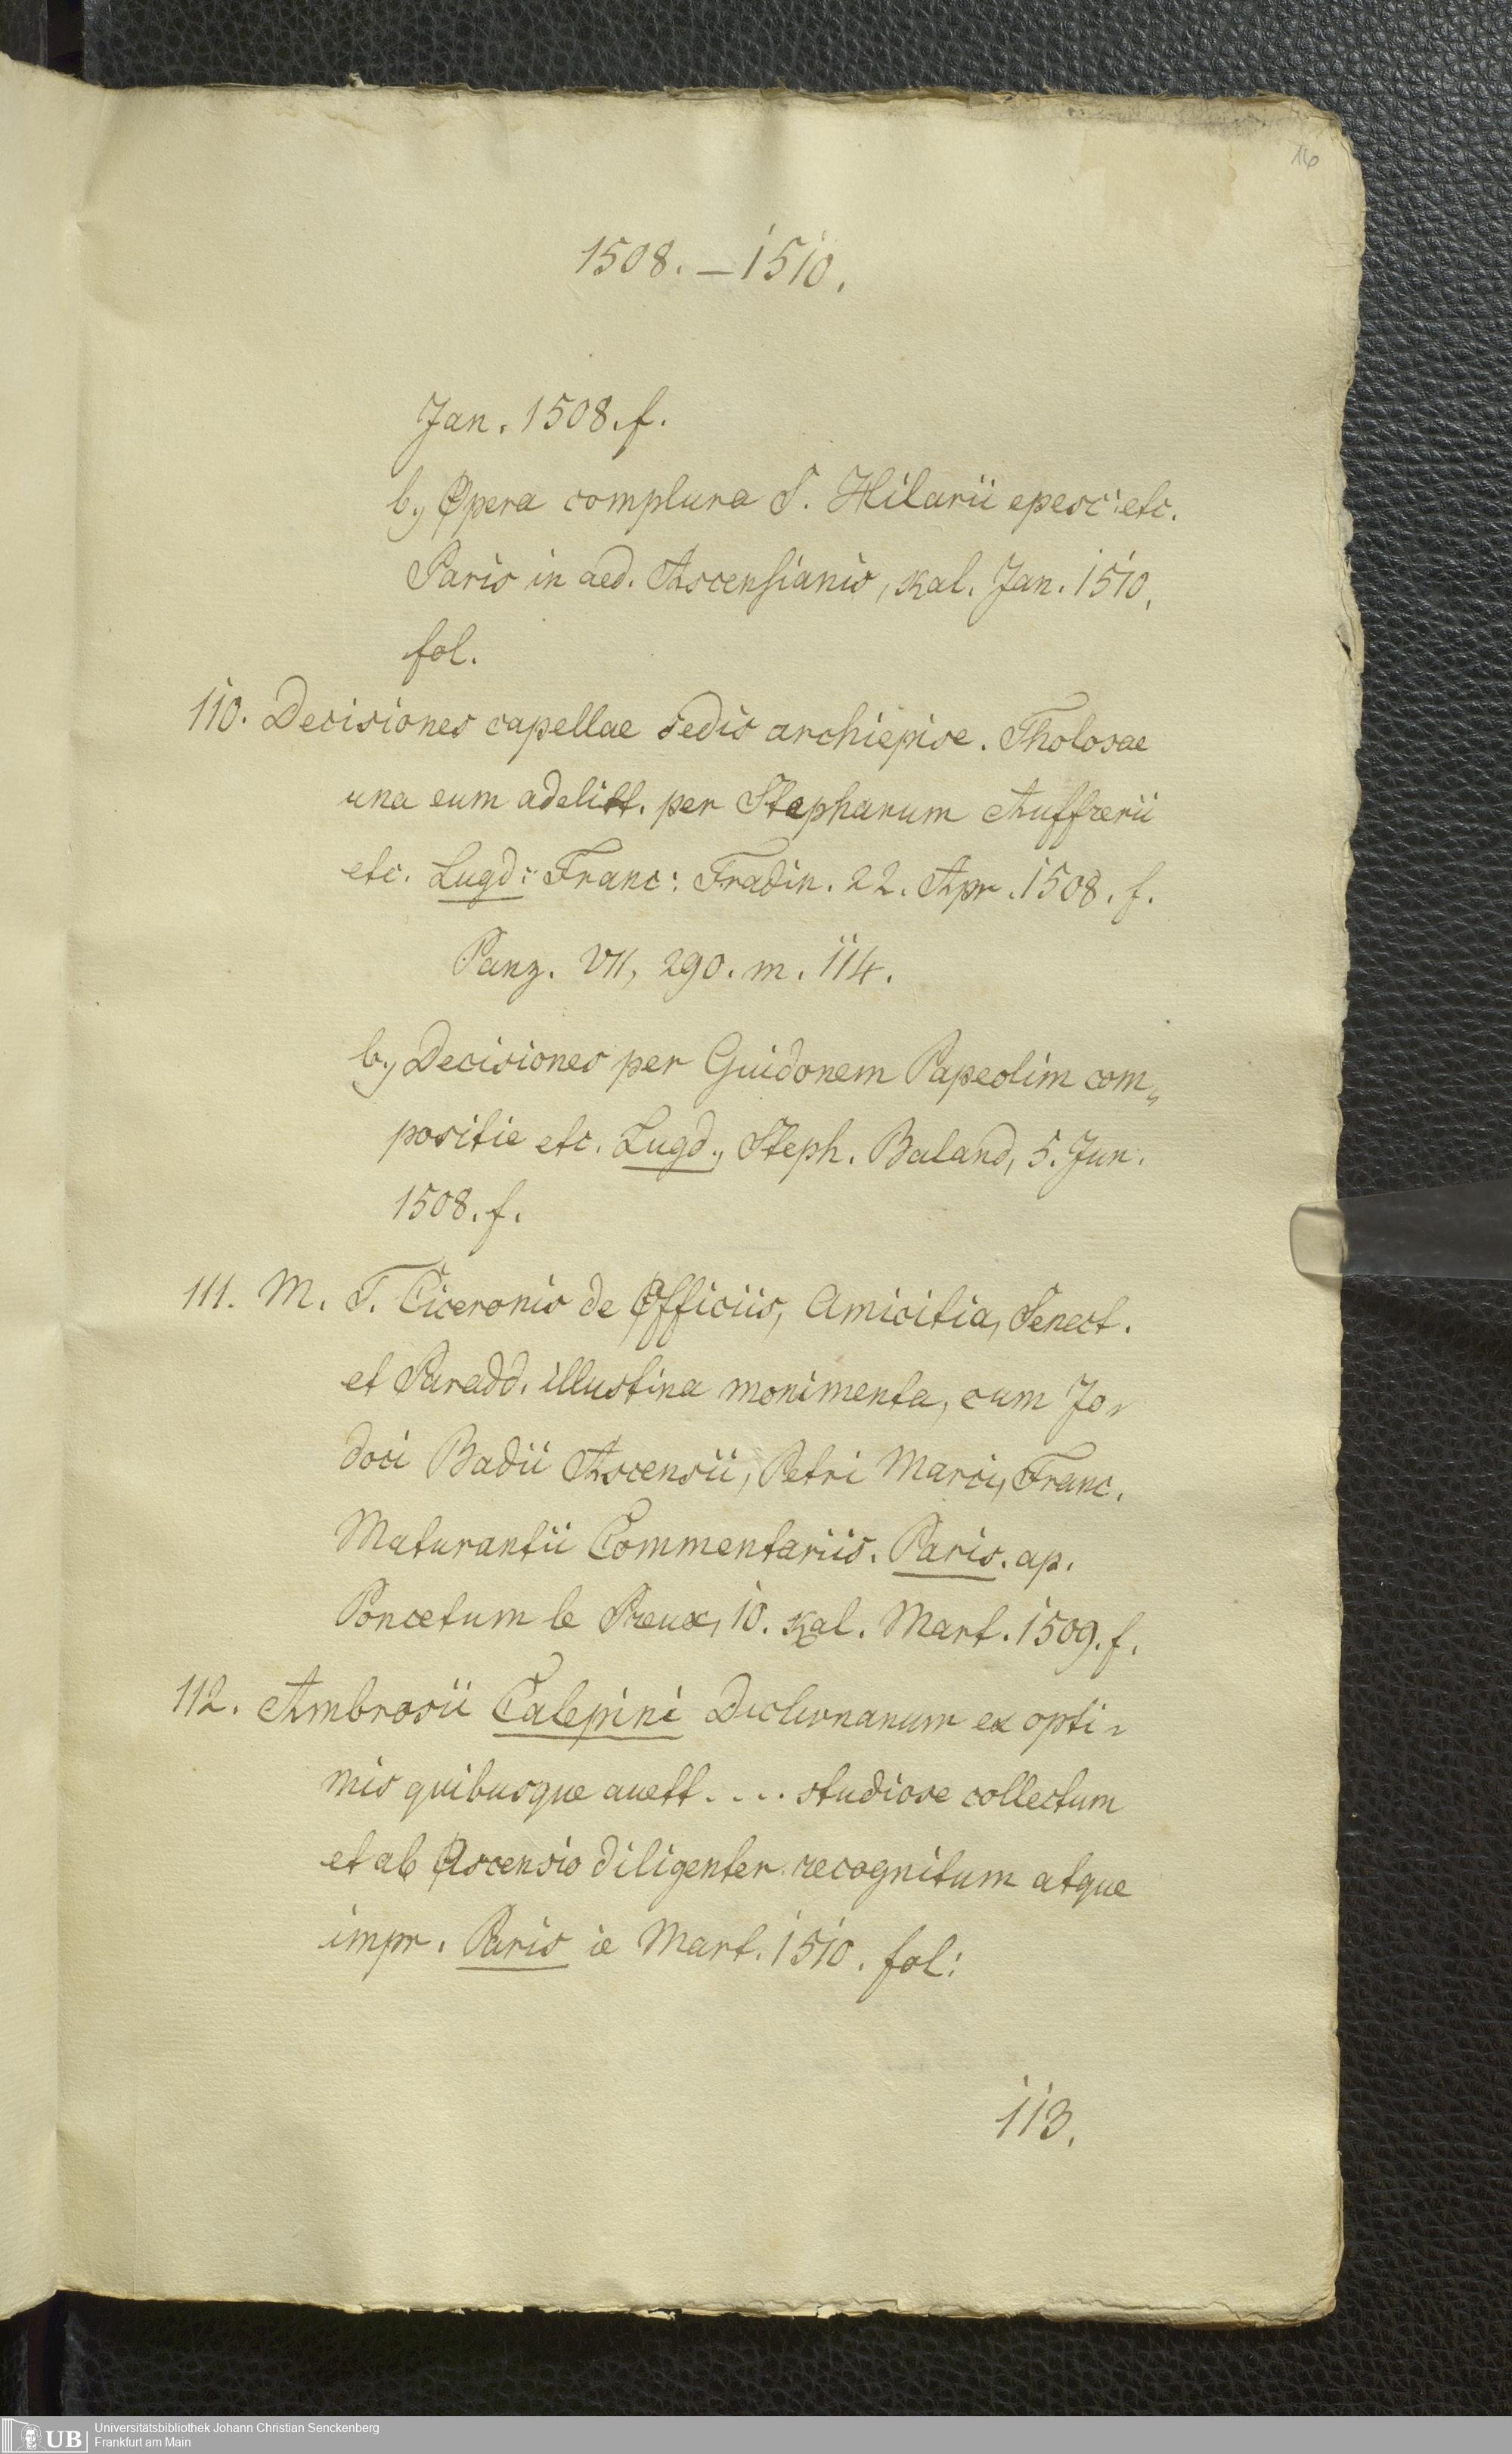 16
1508. – 1510.
Jan. 1508. f.
b., Opera complura S. Hilarii epesc: etc.
Paris in aed. Ascensianis, kal. Jan. 1510.
fol.
110. Decisiones capellae sedis archiepisc. Tholosae
una cum adelitt. per Stephanum Auffrerii
etc. Lugd: Franc: Fradin. 22. Apr. 1508. f.
Panz. VII, 290. m. 114.
b., Decisiones per Guidonem Papeolim com„
positie etc. Lugd., Steph. Baland, 5. Jun.
1508. f.
111. M. T. Ciceronis de Officiis, Amicitia, Senect.
et Paradd. illustina monimenta, cum Jo„
doci Badii Ascensii, Petri Marci, Franc.
Maturantii Commentariis. Paris. ap.
Poncetum le Preux, 10. kal. Mart. 1509. f.
112. Ambrosii Calepini ex opti„
mis quibusque auctt. . . . studiose collectum
et ab Ascensio diligenter recognitum atque
impr. Paris Mart. 1510. fol:
113.
UB Universitätsbibliothek Johann Christian Senckenberg
Frankfurt am Main